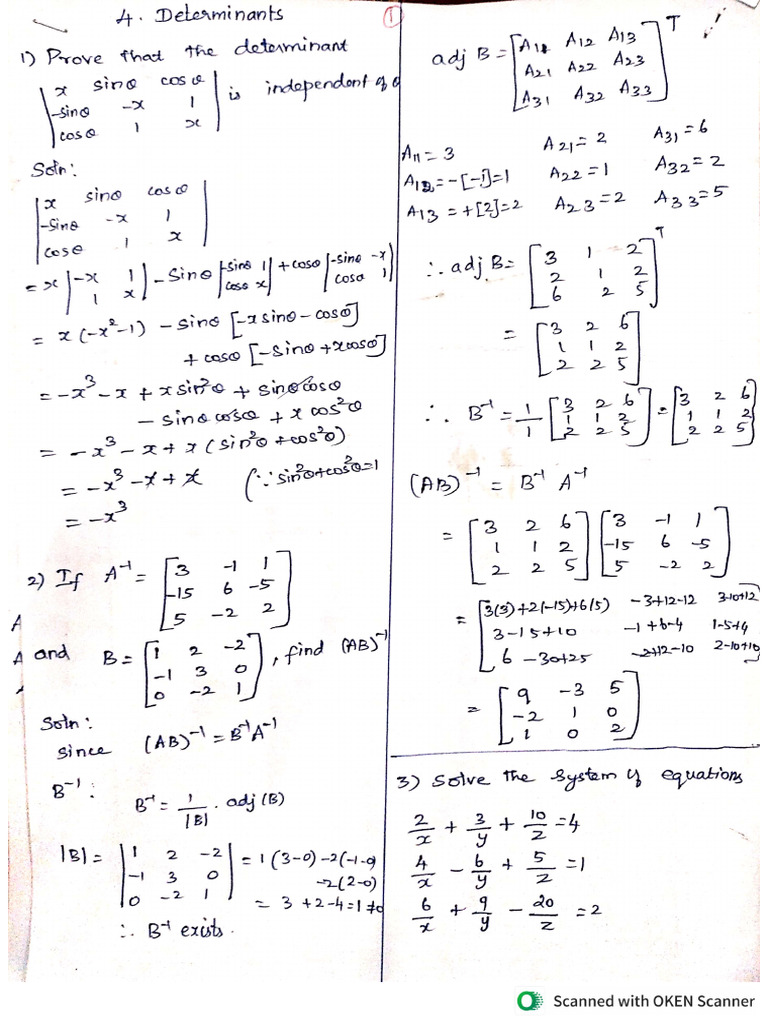 4. Determinants
①
1) Prove that the determinant
| x sinθ cosθ |
| -sinθ -x 1 | is independent of θ
| cosθ 1 x |
Soln:
| x sinθ cosθ |
| -sinθ -x 1 |
| cosθ 1 x |
= x | -x 1 ; 1 x | - Sinθ | -sinθ 1 ; cosθ x | + cosθ | -sinθ -x ; cosθ 1 |
= x(-x²-1) - sinθ [-x sinθ - cosθ]
+ cosθ [-sinθ + x cosθ]
= -x³ - x + x sin²θ + sinθ cosθ
- sinθ cosθ + x cos²θ
= -x³ - x + x (sin²θ + cos²θ)
= -x³ - x + x (∵ sin²θ + cos²θ = 1
= -x³
2) If A⁻¹ = [ 3 -1 1 ]
[ -15 6 -5 ]
[ 5 -2 2 ]
and B = [ 1 2 -2 ]
[ -1 3 0 ] , find (AB)⁻¹
[ 0 -2 1 ]
Soln:
since (AB)⁻¹ = B⁻¹A⁻¹
B⁻¹:
B⁻¹ = 1/|B| . adj (B)
|B| = | 1 2 -2 | = 1 (3-0) -2(-1-0)
| -1 3 0 | -2(2-0)
| 0 -2 1 | = 3 + 2 - 4 = 1 ≠ 0
∴ B⁻¹ exists.
adj B = [ A11 A12 A13 ] T
[ A21 A22 A23 ]
[ A31 A32 A33 ]
A11 = 3 A21 = 2 A31 = 6
A12 = -[-1] = 1 A22 = 1 A32 = 2
A13 = +[2] = 2 A23 = 2 A33 = 5
∴ adj B = [ 3 1 2 ] T
[ 2 1 2 ]
[ 6 2 5 ]
= [ 3 2 6 ]
[ 1 1 2 ]
[ 2 2 5 ]
∴ B⁻¹ = 1/1 [ 3 2 6 ] = [ 3 2 6 ]
[ 1 1 2 ] [ 1 1 2 ]
[ 2 2 5 ] [ 2 2 5 ]
(AB)⁻¹ = B⁻¹ A⁻¹
= [ 3 2 6 ] [ 3 -1 1 ]
[ 1 1 2 ] [ -15 6 -5 ]
[ 2 2 5 ] [ 5 -2 2 ]
= [ 3(3)+2(-15)+6(5) -3+12-12 3-10+12 ]
[ 3-15+10 -1+6-4 1-5+4 ]
[ 6-30+25 -2+12-10 2-10+10 ]
= [ 9 -3 5 ]
[ -2 1 0 ]
[ 1 0 2 ]
3) Solve the system of equations
2/x + 3/y + 10/z = 4
4/x - 6/y + 5/z = 1
6/x + 9/y - 20/z = 2
Scanned with OKEN Scanner